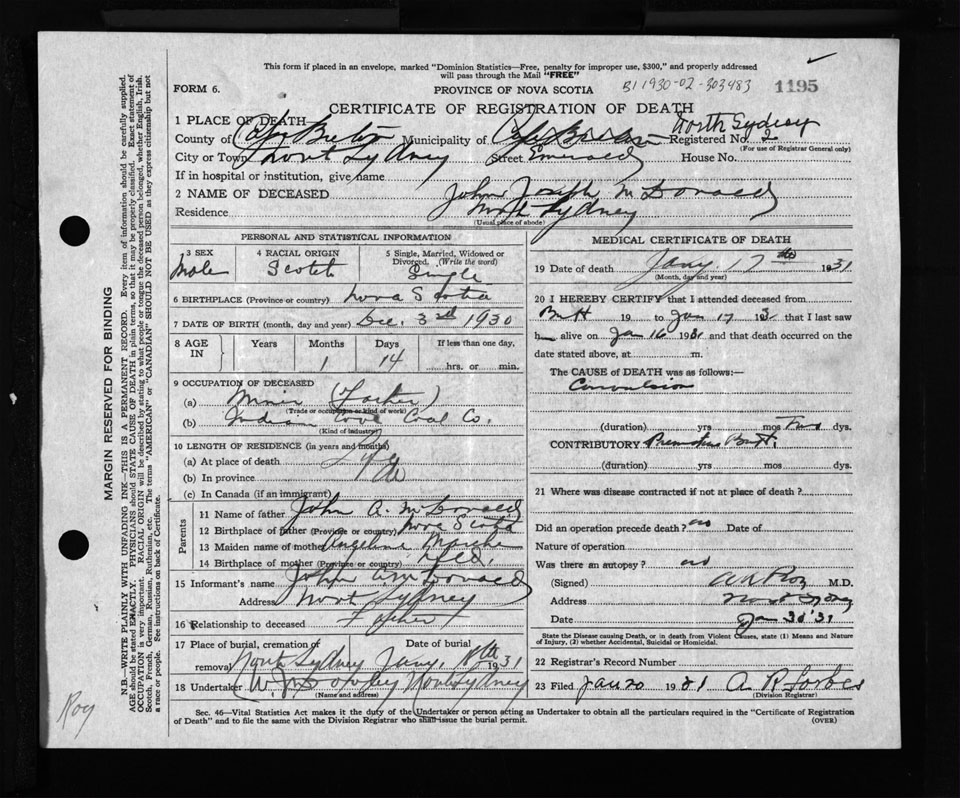 This form if placed in an envelope, marked "Dominion Statistics—Free, penalty for improper use, $300," and properly addressed
will pass through the Mail "FREE"
B1 1930-02-303483
1195
FORM 6.
PROVINCE OF NOVA SCOTIA
CERTIFICATE OF REGISTRATION OF DEATH
1 PLACE OF DEATH
North Sydney
County of Cape Breton Municipality of Cape Breton Registered No. 2
(For use of Registrar General only)
City or Town North Sydney Street Emerald House No.
If in hospital or institution, give name
2 NAME OF DECEASED John Joseph McDonald
Residence North Sydney
(Usual place of abode)
PERSONAL AND STATISTICAL INFORMATION
3 SEX Male
4 RACIAL ORIGIN Scotch
5 Single, Married, Widowed or Divorced. (Write the word) Single
6 BIRTHPLACE (Province or country) Nova Scotia
7 DATE OF BIRTH (month, day and year) Dec. 3rd 1930
8 AGE IN
Years Months 1 Days 14 If less than one day, hrs. or min.
9 OCCUPATION OF DECEASED
(a) Miner (Father)
(Trade or occupation or kind of work)
(b) Indian Cove Coal Co.
(Kind of industry)
10 LENGTH OF RESIDENCE (in years and months)
(a) At place of death
(b) In province
(c) In Canada (if an immigrant)
Parents
11 Name of father John A. McDonald
12 Birthplace of father (Province or country) Nova Scotia
13 Maiden name of mother Angeline
14 Birthplace of mother (Province or country) Nfld.
15 Informant's name John A McDonald
Address North Sydney
16 Relationship to deceased Father
17 Place of burial, cremation or removal North Sydney Date of burial Jany. 1931
18 Undertaker North Sydney
(Name and address)
MEDICAL CERTIFICATE OF DEATH
19 Date of death Jany 17th 1931
(Month, day and year)
20 I HEREBY CERTIFY that I attended deceased from
Birth 19 to Jan 17 193 that I last saw
h alive on Jan 16 1931 and that death occurred on
date stated above, at m.
The CAUSE of DEATH was as follows:—
Convulsion
(duration) yrs mos Two dys.
CONTRIBUTORY Premature Birth.
(duration) yrs mos dys.
21 Where was disease contracted if not at place of death?
Did an operation precede death? no Date of
Nature of operation
Was there an autopsy? no
(Signed) M.D.
Address North Sydney
Date Jan 30 '31
State the Disease causing Death, or in death from Violent Causes, state (1) Means and Nature
of Injury, (2) whether Accidental, Suicidal or Homicidal.
22 Registrar's Record Number
23 Filed Jan 20 1931 A. R. Forbes
(Division Registrar)
Sec. 46—Vital Statistics Act makes it the duty of the Undertaker or person acting as Undertaker to obtain all the particulars required in the "Certificate of Registration
of Death" and to file the same with the Division Registrar who shall issue the burial permit.
(OVER)
MARGIN RESERVED FOR BINDING
N.B.—WRITE PLAINLY WITH UNFADING INK—THIS IS A PERMANENT RECORD. Every item of information should be carefully supplied.
AGE should be stated EXACTLY. PHYSICIANS should STATE CAUSE OF DEATH in plain terms, so that it may be properly classified. Exact statement of
OCCUPATION is very important. RACIAL ORIGIN will be described by stating to what people or tongue the deceased person belonged, whether English, Irish,
Scotch, French, German, Russian, Ruthenian, etc. The terms "AMERICAN" or "CANADIAN" SHOULD NOT BE USED as they express citizenship but not
a race or people. See instructions on back of Certificate.
Roy